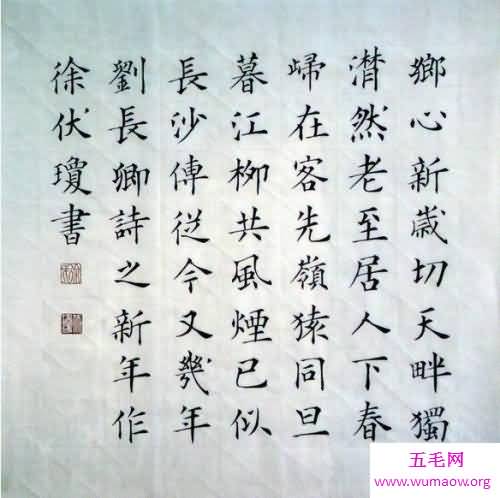 鄉心新歲切天畔獨
潸然老至居人下春
歸在客先嶺猿同旦
暮江柳共風煙已似
長沙傅從今又幾年
劉長卿詩之新年作
徐伏瓊書
五毛网
www.wumaow.org